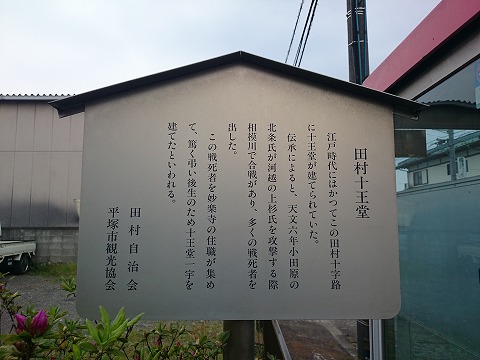 田村十王堂
江戸時代にはかつてこの田村十字路
に十王堂が建てられていた。
伝承によると、天文六年小田原の
北条氏が河越の上杉氏を攻撃する際
相模川で合戦があり、多くの戦死者を
出した。
この戦死者を妙楽寺の住職が集め
て、篤く弔い後生のため十王堂一宇を
建てたといわれる。
田村自治会
平塚市観光協会